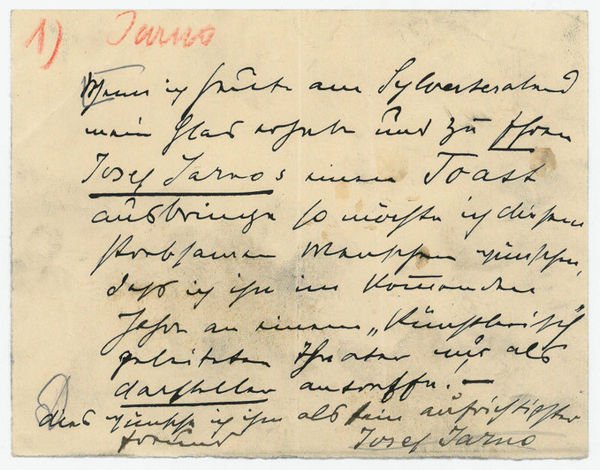 1) Jarno
Wenn ich heute am Sylvesterabend
mein Glas erhebe und zu Ehren
Josef Jarnos einen Toast
ausbringe so möchte ich diesem
strebsamen Menschen wünschen,
daß ich ihn im kommenden
Jahre an einem „Künstlerisch"
geleiteten Theater nur als
Darsteller antreffe. —
dies wünsche ich ihm als sein aufrichtigster
Freund Josef Jarno